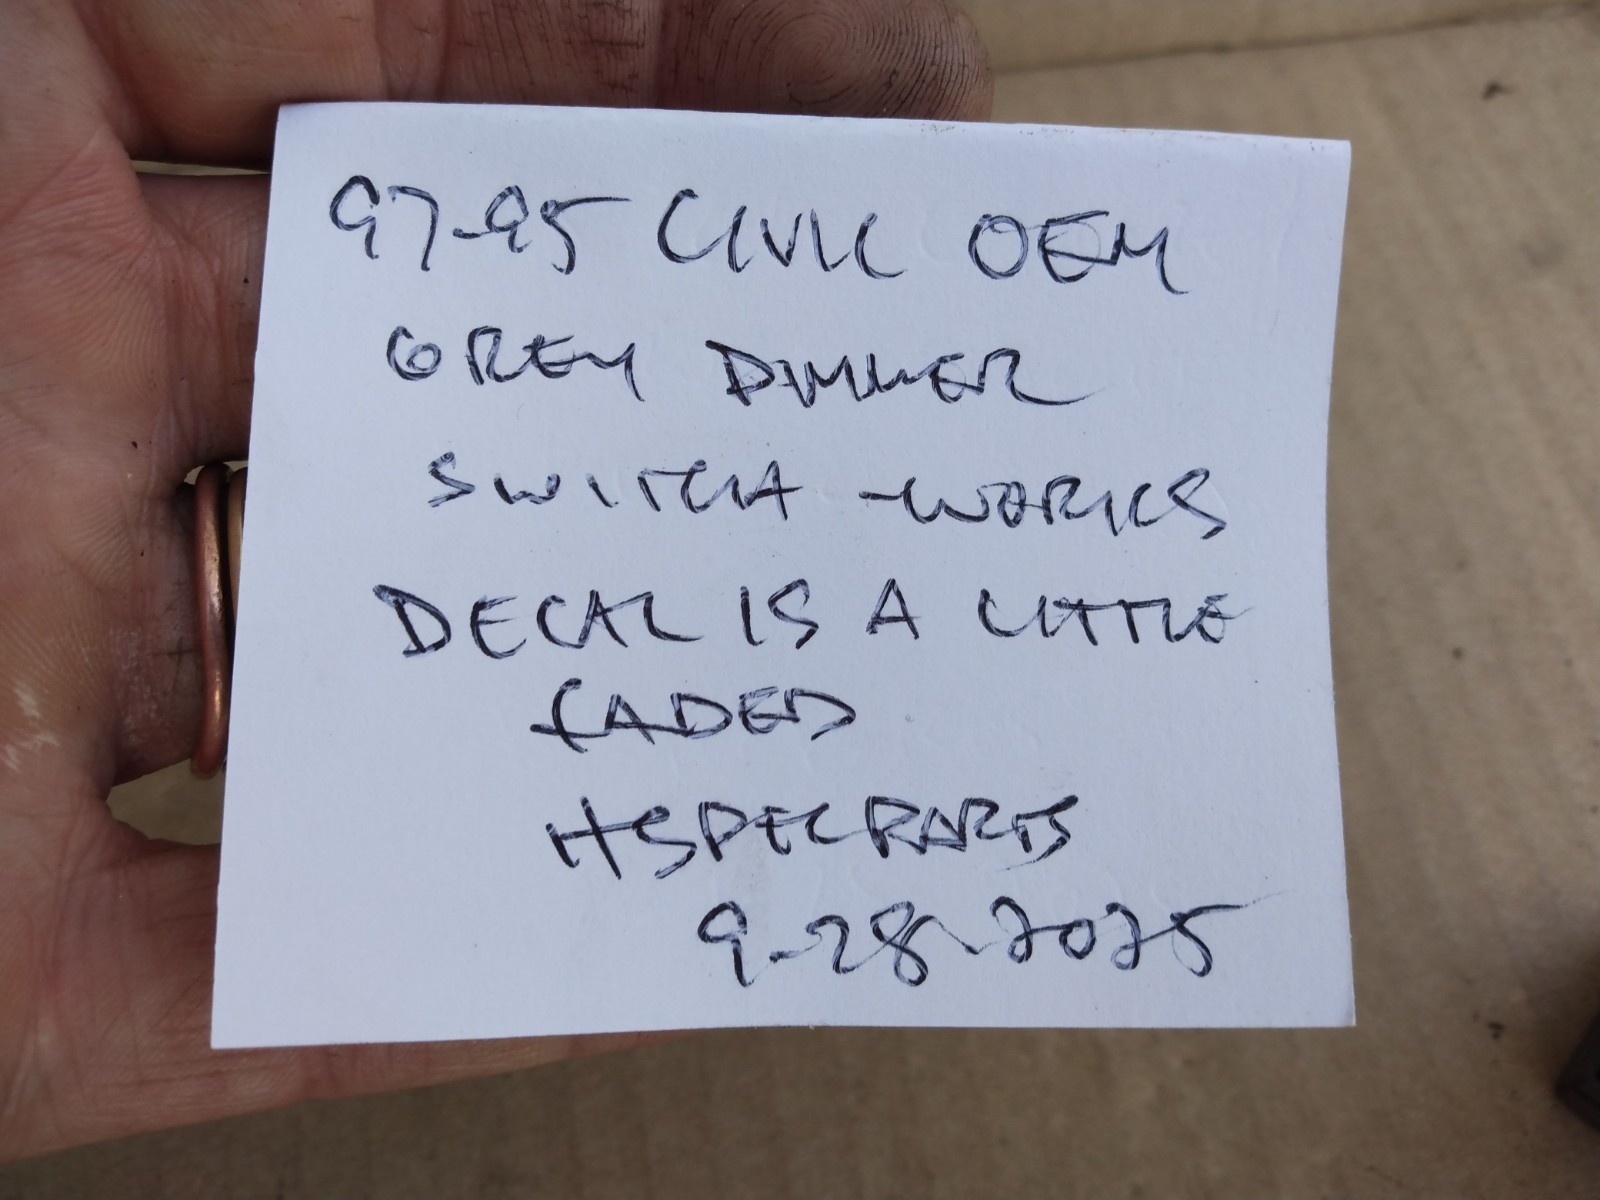 97-95 CIVIC OEM
GREY DIMMER
SWITCH - WORKS
DECAL IS A LITTLE
FADED
HSPECPARTS
9-28-2025